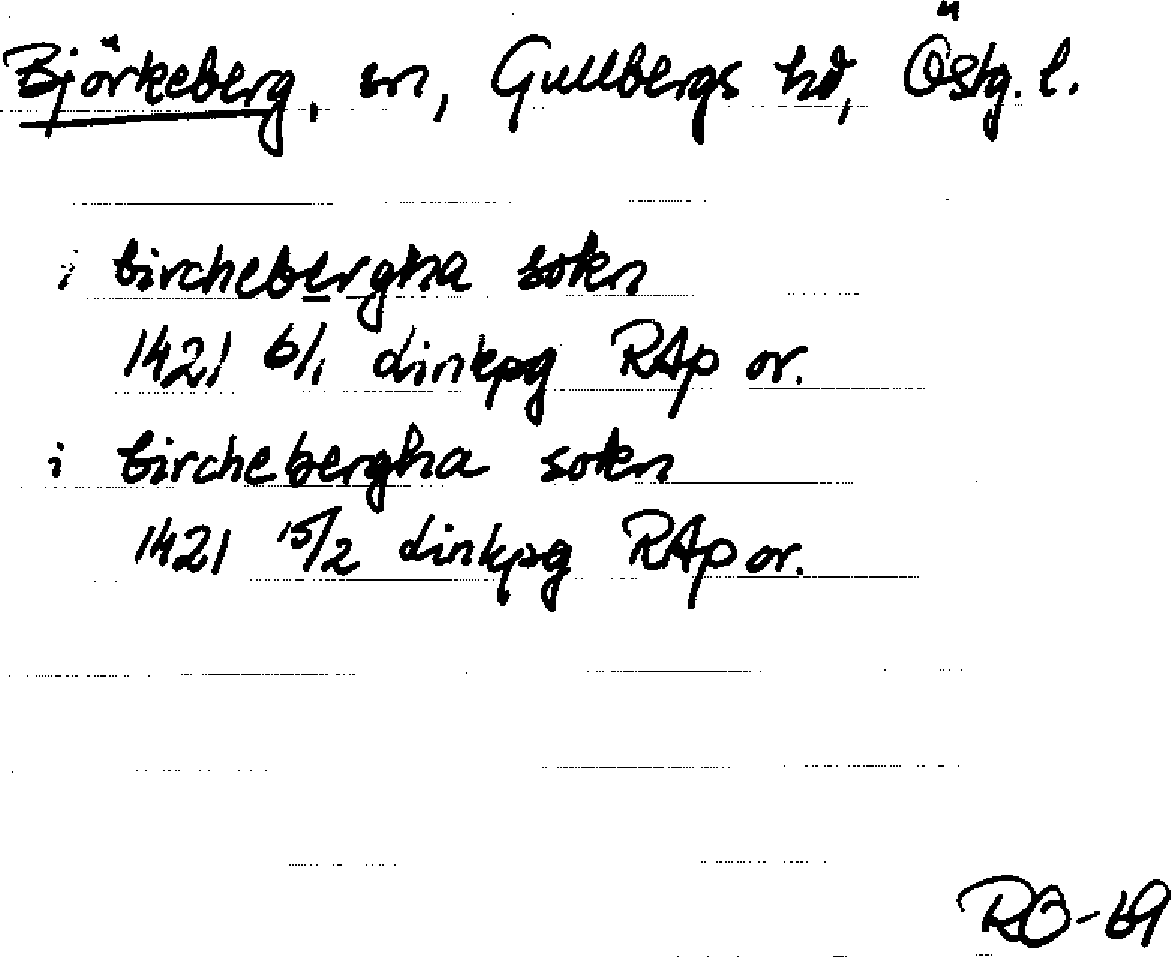 Björkeberg, sn, Gullbergs hd, Östg. l.
i birchebergha sokn
1421 6/1 Linkpg RAp or.
i birchebergha sokn
1421 15/2 Linkpg RAp or.
RO-69